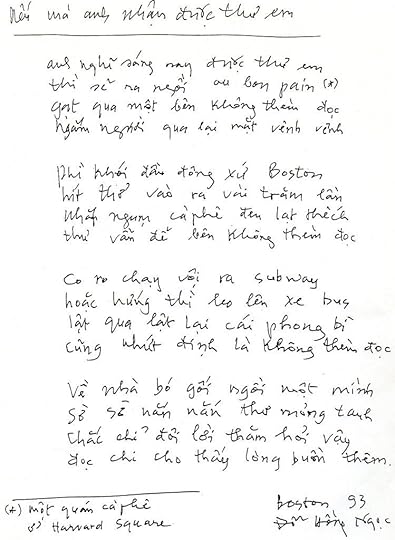 Nếu mà anh nhận được thư em
anh nghĩ sáng nay được thư em
thì sẽ ra ngồi au bon pain (*)
gạt qua một bên không thèm đọc
ngắm người qua lại mặt vênh vênh
Phì khói đầu đông xứ Boston
hít thở vào ra vài trăm lần
nhắp ngụm cà phê đen lạt thếch
thư vẫn để bên không thèm đọc
Co ro chạy vội ra subway
hoặc hứng thì leo lên xe bus
lật qua lật lại cái phong bì
cũng nhứt định là không thèm đọc
Về nhà bó gối ngồi một mình
Sờ sờ nắn nắn thư mỏng tanh
chắc chỉ đôi lời thăm hỏi vậy
đọc chi cho thấy lòng buồn thêm.
(*) một quán cà phê
ở Harvard Square
Boston 93
Đỗ Hồng Ngọc